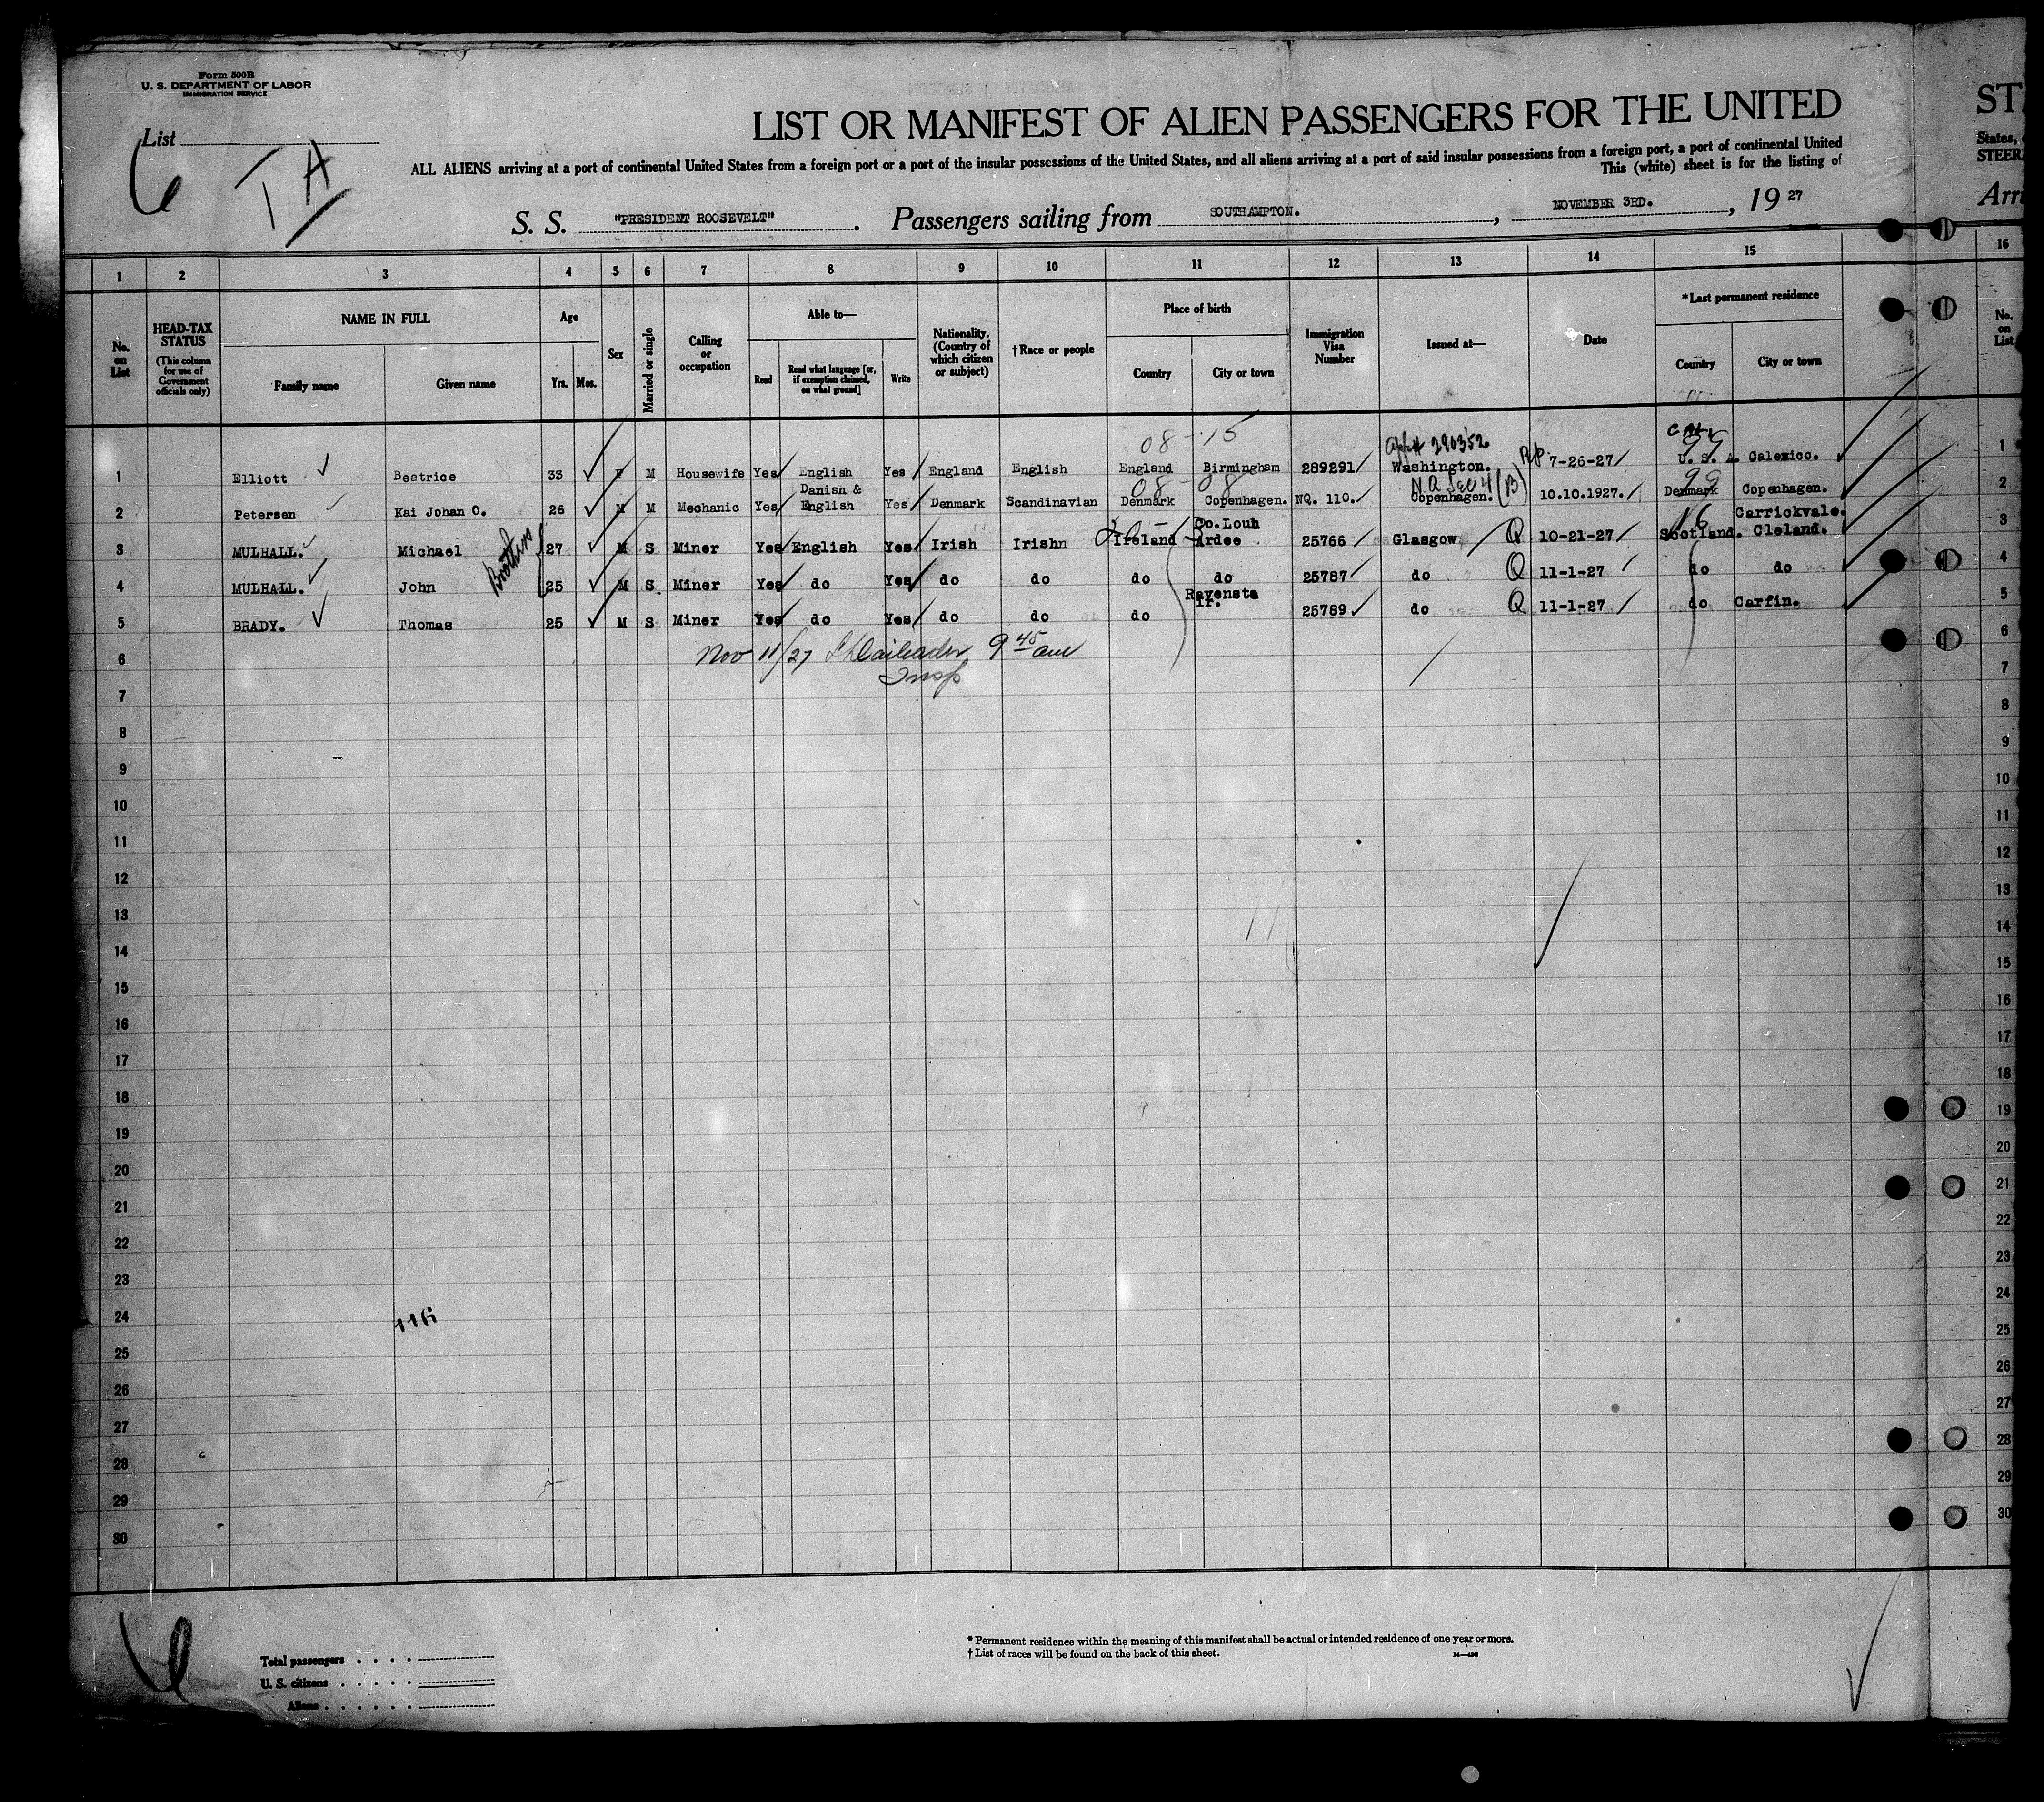 Form 500B
U. S. DEPARTMENT OF LABOR
IMMIGRATION SERVICE
List
6
TA
LIST OR MANIFEST OF ALIEN PASSENGERS FOR THE UNITED
ST
ALL ALIENS arriving at a port of continental United States from a foreign port or a port of the insular possessions of the United States, and all aliens arriving at a port of said insular possessions from a foreign port, a port of continental United
States,
This (white) sheet is for the listing of
STEER
S. S. "PRESIDENT ROOSEVELT". Passengers sailing from SOUTHAMPTON. , NOVEMBER 3RD. , 19 27
Arri
1 2 3 4 5 6 7 8 9 10 11 12 13 14 15 16
No. on List
HEAD-TAX STATUS
(This column for use of Government officials only)
NAME IN FULL
Family name
Given name
Age
Yrs. Mos.
Sex
Married or single
Calling or occupation
Able to—
Read
Read what language [or, if exemption claimed, on what ground]
Write
Nationality. (Country of which citizen or subject)
†Race or people
Place of birth
Country
City or town
Immigration Visa Number
Issued at—
Date
*Last permanent residence
Country
City or town
No. on List
08-15 290352 99
1 Elliott Beatrice 33 F M Housewife Yes English Yes England English England Birmingham 289291 Washington. 7-26-27 U. S. A. Calexico. 1
08-08 (B) 99
2 Petersen Kai Johan O. 26 M M Mechanic Yes Danish & English Yes Denmark Scandinavian Denmark Copenhagen. NQ. 110. Copenhagen. 10.10.1927. Denmark Copenhagen. 2
Brothers
3 MULHALL. Michael 27 M S Miner Yes English Yes Irish Irishn Ireland Co.Louh Ardee 25766 Glasgow Q 10-21-27 Scotland. Carrickvale. Cleland. 3
4 MULHALL. John 25 M S Miner Yes do Yes do do do do 25787 do Q 11-1-27 do do 4
5 BRADY. Thomas 25 M S Miner Yes do Yes do do do Ravensta Ir. 25789 do Q 11-1-27 do Carfin. 5
6 Nov 11/27 9 45 am 6
Insp
7 7
8 8
9 9
10 10
11 11
12 12
13 13
14 14
15 15
16 16
17 17
18 18
19 19
20 20
21 21
22 22
23 23
24 116 24
25 25
26 26
27 27
28 28
29 29
30 30
6
* Permanent residence within the meaning of this manifest shall be actual or intended residence of one year or more.
† List of races will be found on the back of this sheet.
14—430
Total passengers . . . .
U. S. citizens . . . . .
Aliens . . . . . .